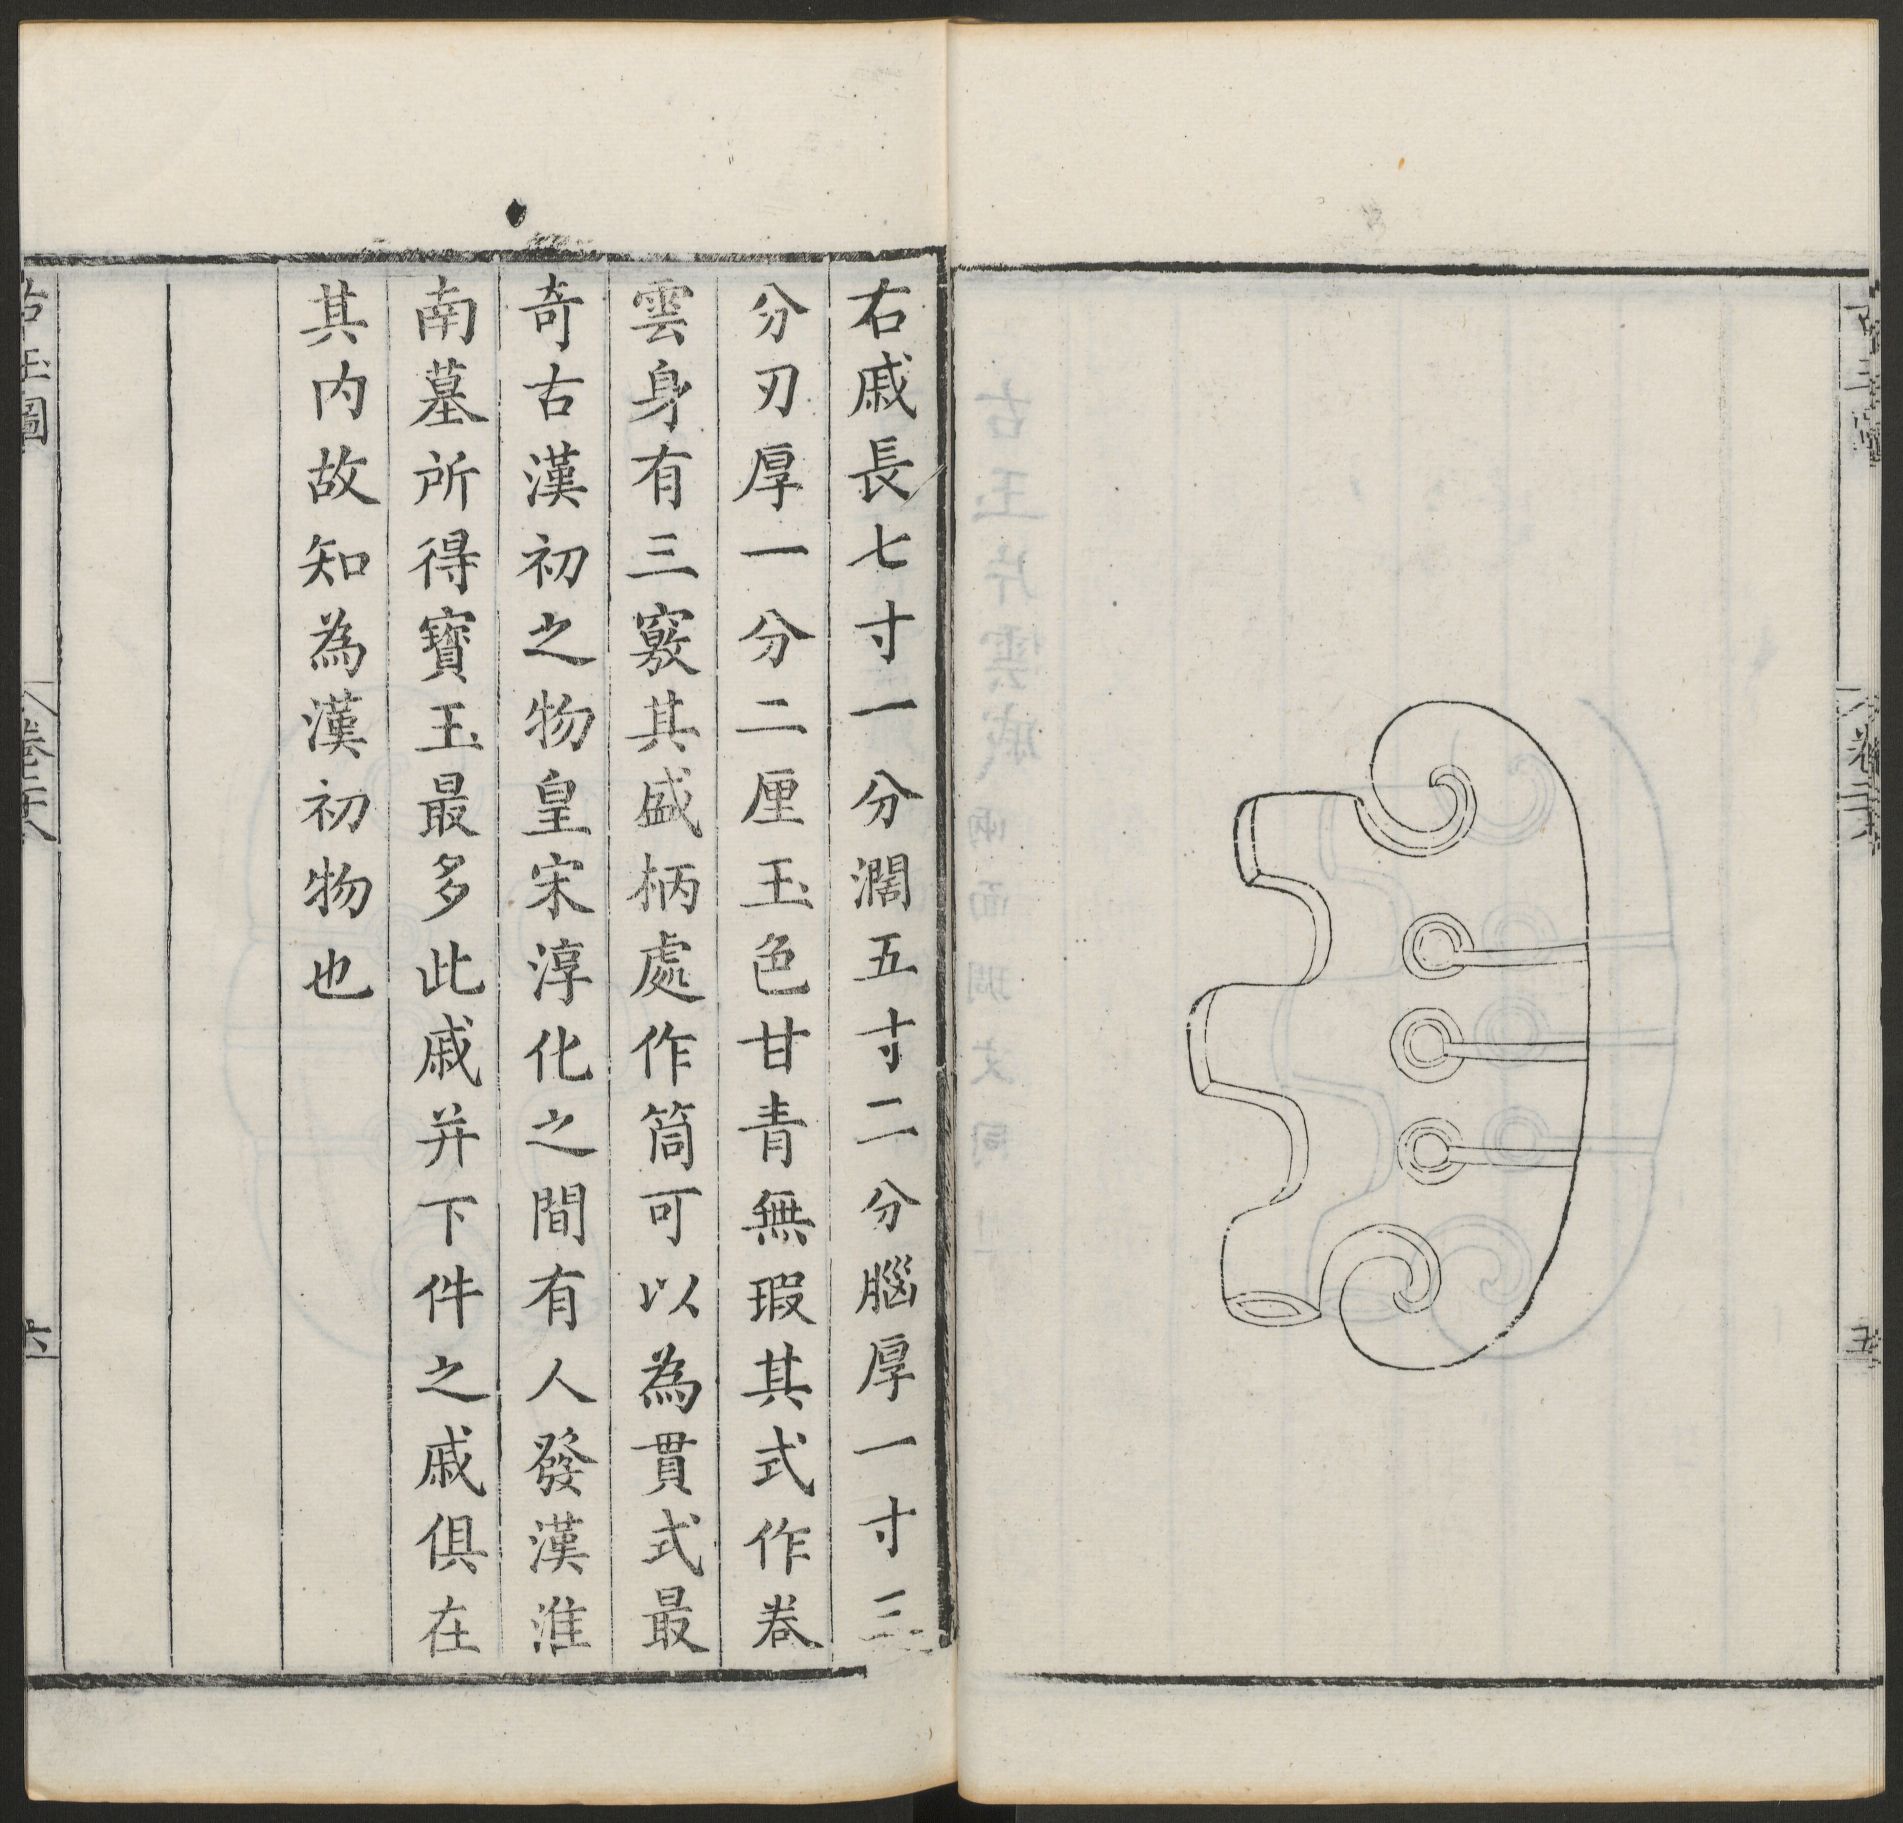 右戚長七寸一分濶五寸二分腦厚一寸三
分刃厚一分二厘玉色甘青無瑕其式作卷
雲身有三竅其盛柄處作筒可以為貫式最
奇古漢初之物皇宋淳化之間有人發漢淮
南墓所得寶玉最多此戚并下件之戚俱在
其内故知為漢初物也
古玉圖
六